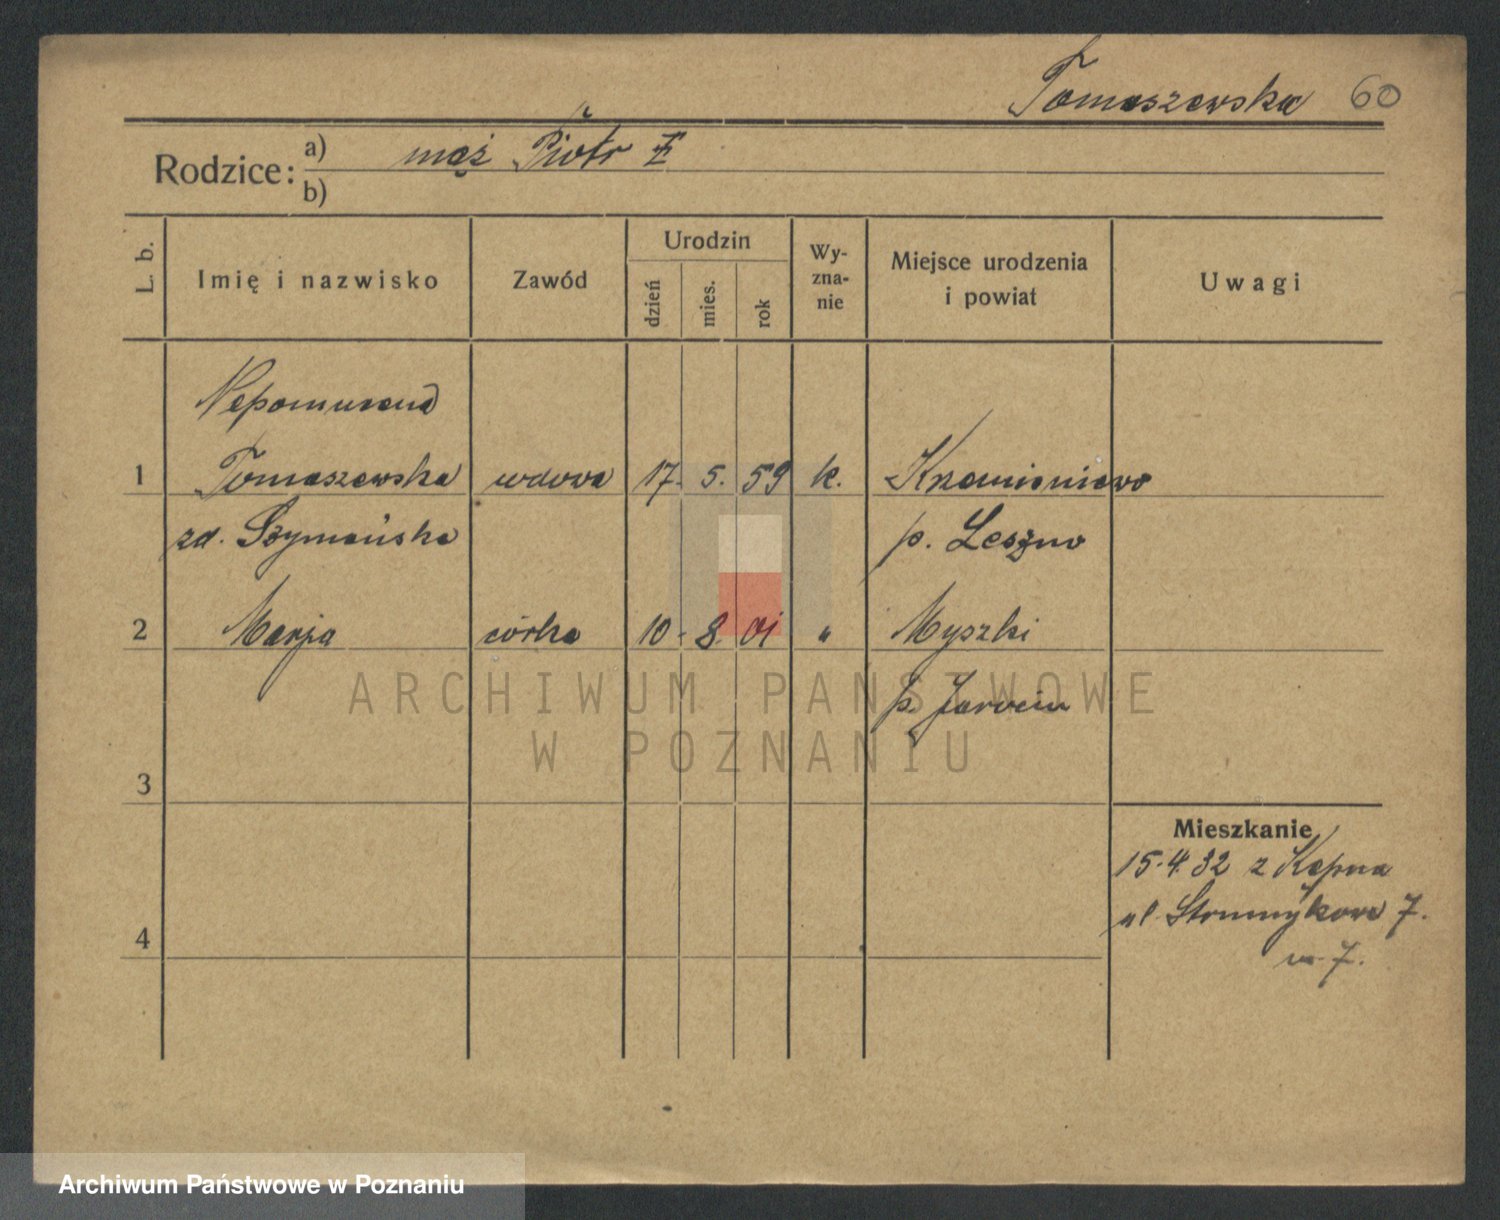 Tomaszewska 60
Rodzice: a) mąż Piotr
b)
L. b.
Imię i nazwisko
Zawód
Urodzin
dzień
mies.
rok
Wy-
zna-
nie
Miejsce urodzenia
i powiat
Uwagi
Nepomucena
1 Tomaszewska wdowa 17. 5. 59 k. Krzemieniewo
zd. Szymańska p. Leszno
2 Marja córka 10. 8. 01 " Myszki
p. Jarocin
ARCHIWUM PAŃSTWOWE
W POZNANIU
3
Mieszkanie
15.4.32 z Kępna
ul. Strumykowa 7.
4
m 7.
Archiwum Państwowe w Poznaniu